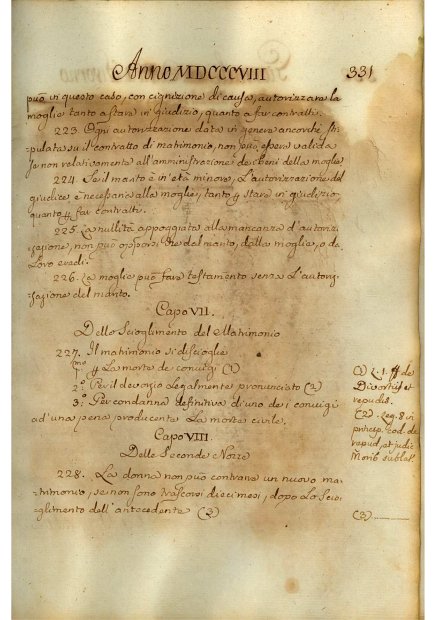 Anno MDCCCVIII
331
può in questo caso, con cignizione di causa, autorizzare la
moglie tanto a stare in giudizio, quanto a far contratti.
223. Ogni autorizzazione data in genere ancorchè sti-
pulata sul contratto di matrimonio, non può essere valida
se non relativamente all'amministrazione dei beni della moglie
224. Se il marito è in età minore, L'autorizzazione del
giudice è necessaria alla moglie, tanto p stare in giudizio,
quanto p far contratti.
225. La nullità appoggiata alla mancanza d'autoriz-
zazione, non può opporsi che dal marito, dalla moglie, o da
Loro eredi.
226. La moglie può fare testamento senza L'autoriz-
zazione del marito.
Capo VII.
Dello Scioglimento del Matrimonio
227. Il matrimonio si discioglie
1mo p La morte de' coniugi (1)
2.o Per il divorzio Legalmente pronunciato (2)
3.o Per condanna definitiva di uno de i coniugi
ad una pena producente La morte civile.
Capo VIII.
Delle Seconde Nozze
228. La donna non può contrarre un nuovo ma-
trimonio, se non sono trascorsi dieci mesi, dopo Lo scio-
glimento dell'antecedente (3)
(1) L. 1. ff de
Divortiis et
repudis.
(2) Leg. 8 in
princip. Cod. de
repud, et judic
Morib sublat
(3)